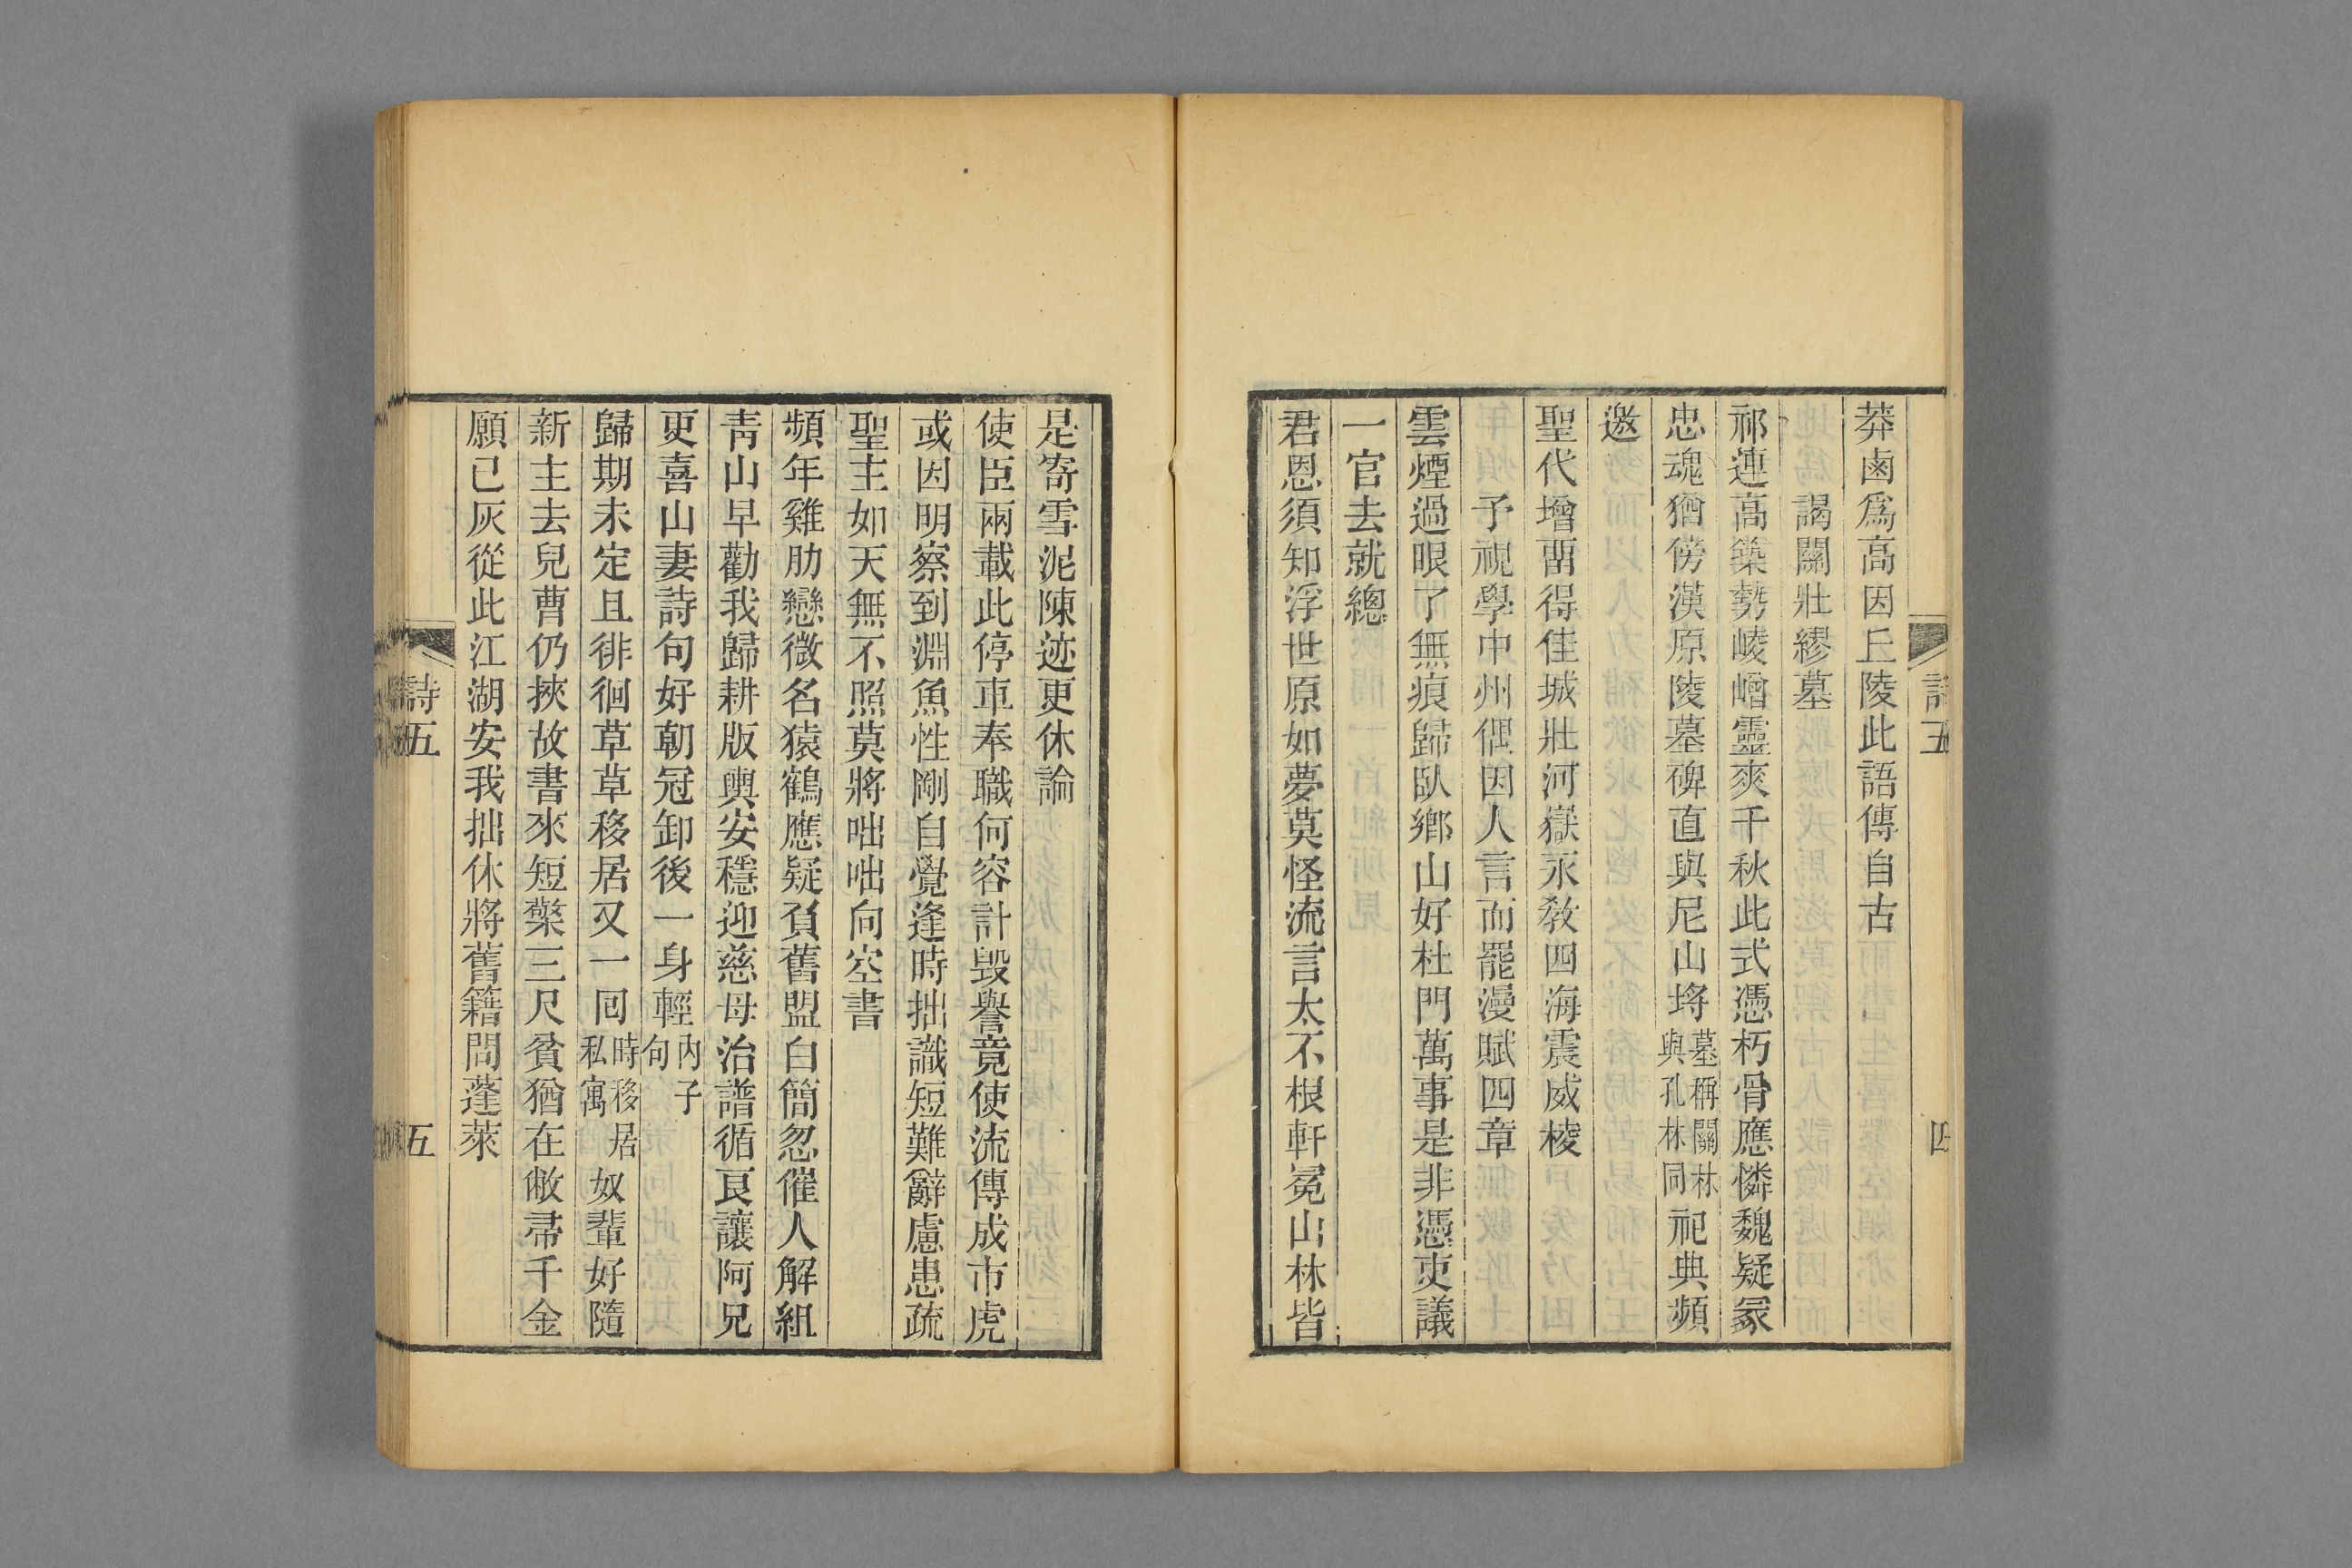 詩五
四
莽鹵爲高因丘陵此語傳自古
謁關壯繆墓
祁連高築勢崚嶒靈爽千秋此式憑朽骨應憐魏疑冢
忠魂猶傍漢原陵墓碑直與尼山埒墓稱關林與孔林同祀典頻
邀
聖代增畱得佳城壯河嶽永敎四海震威棱
予視學中州偶因人言而罷漫賦四章
雲煙過眼了無痕歸臥鄉山好杜門萬事是非憑吏議
一官去就總
君恩須知浮世原如夢莫怪流言太不根軒冕山林皆
是寄雪泥陳迹更休論
使臣兩載此停車奉職何容計毀譽竟使流傳成市虎
或因明察到淵魚性剛自覺逢時拙識短難辭慮患疏
聖主如天無不照莫將咄咄向空書
頻年雞肋戀微名猿鶴應疑負舊盟白簡忽催人解組
靑山早勸我歸耕版輿安穩迎慈母治譜循良讓阿兄
更喜山妻詩句好朝冠卸後一身輕內子句
歸期未定且徘徊草草移居又一囘時移居私寓奴輩好隨
新主去兒曹仍挾故書來短檠三尺貧猶在敝帚千金
願已灰從此江湖安我拙休將舊籍問蓬萊
詩五
五